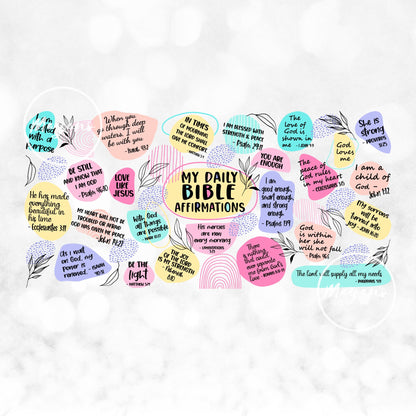 I am
created
with a
purpose
When you
go through deep
waters, I will
be with you
- Isaiah 43:2
IN TIMES
OF MOURNING
THE LORD SHALL
GIVE ME COMFORT
I AM BLESSED WITH
STRENGTH & PEACE
- Psalm 29:11
The
love of
God is
shown in
me
She is
strong
- PROVERBS
31:25
God
loves
me
BE STILL
AND KNOW THAT
I AM GOD
- Psalm 46:10
LOVE
LIKE
JESUS
MY DAILY
BIBLE
AFFIRMATIONS
YOU ARE
ENOUGH
The
peace of
God rules
in my heart
- COLOSSIANS 3:15
I am a
child of
God
He has made
everything
beautiful in
his time
- Ecclesiastes 3:11
MY HEART WILL NOT BE
TROUBLED OR AFRAID
GOD HAS GIVEN ME PEACE
John 14:27
With God,
all things
are possible
His mercies
are new
every morning
- LAMENTATIONS
I am
good enough,
smart enough,
and strong
enough
- Psalms 139:14
My sorrows
will be
turned into
joy
As I wait
on God, my
power is
renewed
- ISAIAH
40:31
BE THE
light
- MATTHEW 5:14
THE JOY
OF THE LORD
IS MY STRENGTH
- Nehemiah
8:10
There
is nothing
that could
ever separate
me from God's
love
God is
within her
she will
not fall
- Psalm 46:5
The Lord will supply all my needs